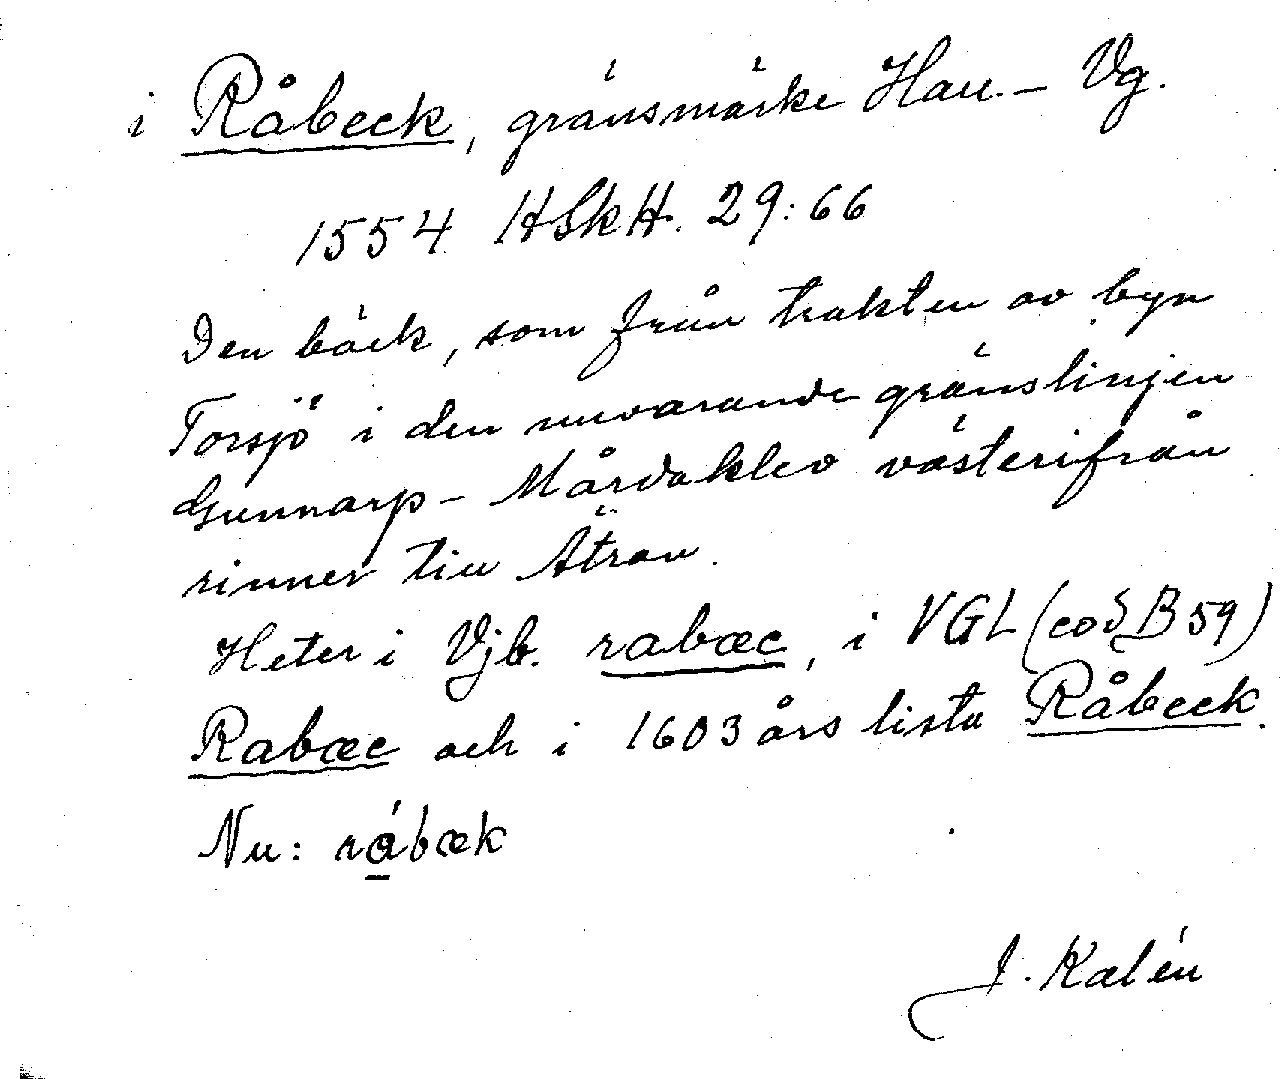 i Råbeck, gränsmärke Hall. – Vg.
1554 HSkH. 29:66
Den bäck, som från trakten av byn
Torsjö i den nuvarande gränslinjen
Gunnarp – Mårdaklev västerifrån
rinner till Ätran.
Heter i Vjb. rabæc, i VGL (cod B 59)
Rabæc och i 1603 års lista Råbeck.
Nu: råbæk
J. Kalén